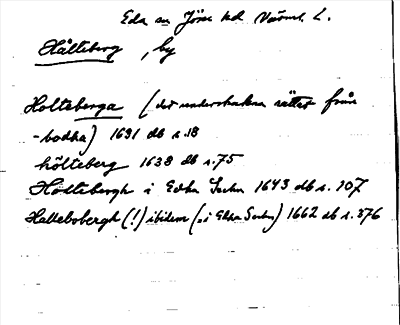 Eda sn Jösse hd Värml. L.
Hålteberg, by
Holteberga (det understrukna rättat från
-bodha) 1631 db s. 18
hölteberg 1638 db s. 75
Holtebergh i Edha Sochn 1643 db s. 107
Hallebobergh (!) ibidem (: i Edha Sochn) 1662 db s. 376